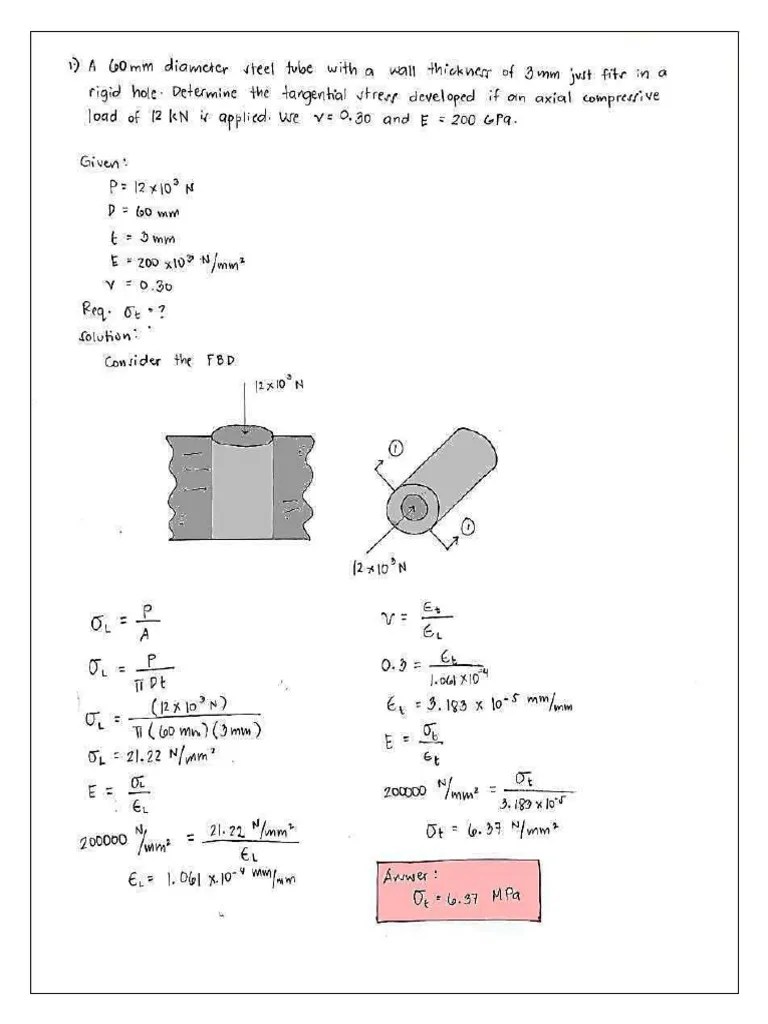 1) A 60mm diameter steel tube with a wall thickness of 3mm just fits in a
rigid hole. Determine the tangential stress developed if an axial compressive
load of 12 kN is applied. Use ν = 0.30 and E = 200 GPa.
Given:
P = 12 x 10³ N
D = 60 mm
t = 3 mm
E = 200 x10³ N/mm²
ν = 0.30
Req. σt = ?
Solution:
Consider the FBD
12 x 10³ N
①
①
12 x 10³ N
σL = P/A
σL = P/πDt
σL = (12 x 10³ N)/π(60 mm)(3 mm)
σL = 21.22 N/mm²
E = σL/ϵL
200000 N/mm² = 21.22 N/mm²/ϵL
ϵL = 1.061 x 10⁻⁴ mm/mm
ν = ϵt/ϵL
0.3 = ϵt/1.061 x 10⁻⁴
ϵt = 3.183 x 10⁻⁵ mm/mm
E = σt/ϵt
200000 N/mm² = σt/3.183 x 10⁻⁵
σt = 6.37 N/mm²
Answer:
σt = 6.37 MPa